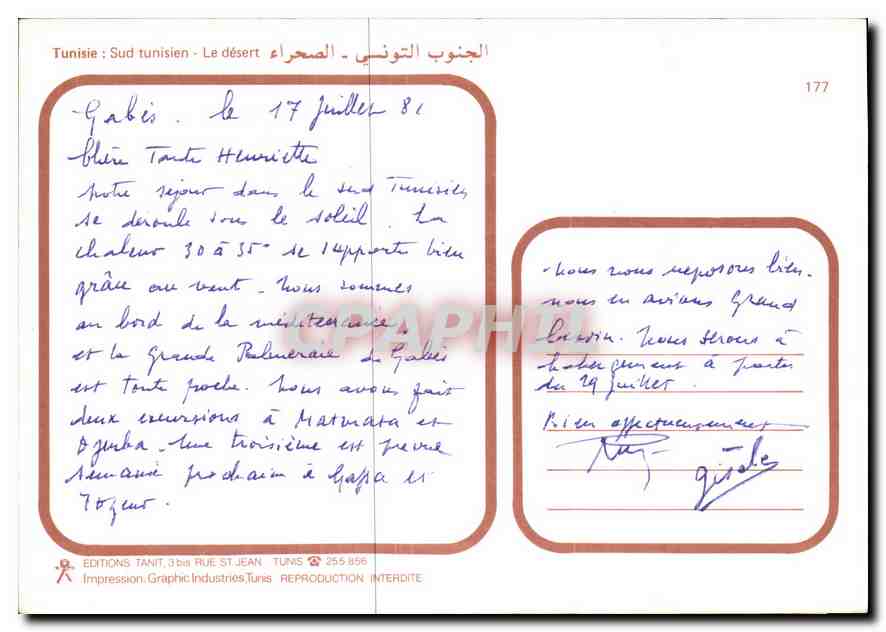 Tunisie : Sud tunisien - Le désert الجنوب التونسي - الصحراء
177
Gabès. le 17 Juillet 81
Chère Tante Henriette
notre séjour dans le sud Tunisien
se déroule sous le soleil. La
chaleur 30 à 35° se supporte bien
grâce au vent. Nous sommes
au bord de la méditerranée,
et la Grande Palmeraie de Gabès
est toute proche. Nous avons fait
deux excursions à Matmata et
Djerba. Une troisième est prévue
semaine prochaine à Gafsa et
Tozeur.
Nous nous reposons bien.
nous en avions Grand
besoin. Nous serons à
à partir
du 29 Juillet.
Bien affectueusement
Gisèle
CPAPHIL
EDITIONS TANIT, 3 bis RUE ST JEAN TUNIS ☎ 255.856
Impression. Graphic Industries, Tunis REPRODUCTION INTERDITE